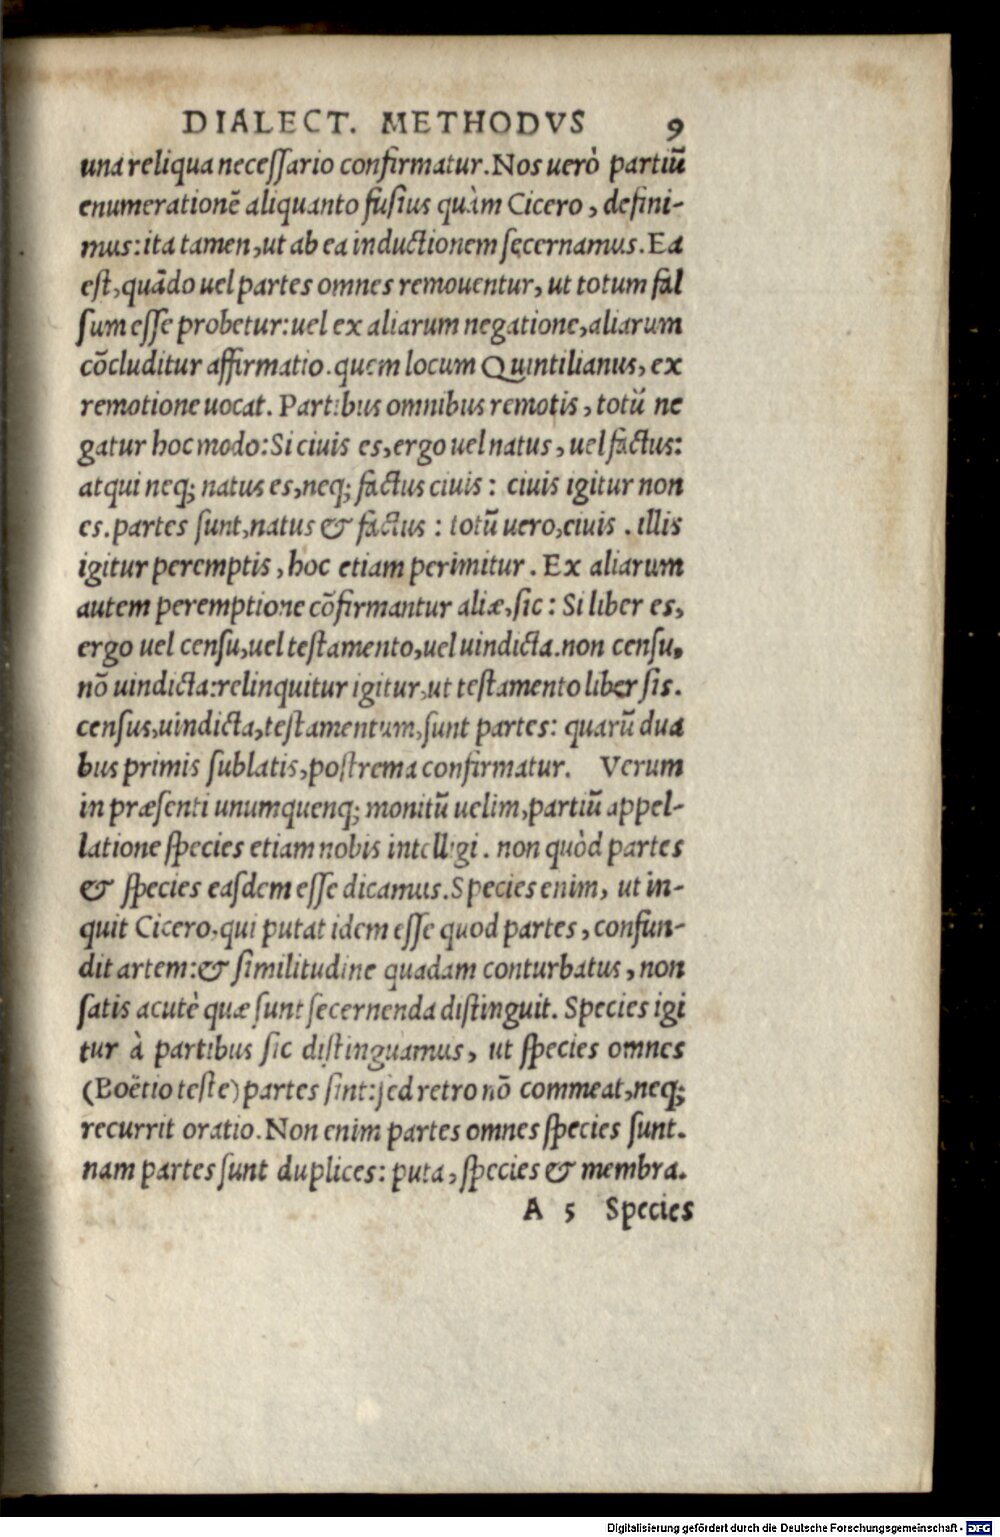 DIALECT. METHODVS 9
una reliqua necessario confirmatur. Nos uerò partiū
enumerationē aliquanto fusius quàm Cicero, defini-
mus: ita tamen, ut ab ea inductionem secernamus. Ea
est, quādo uel partes omnes remouentur, ut totum fal
sum esse probetur: uel ex aliarum negatione, aliarum
cōcluditur affirmatio. quem locum Quintilianus, ex
remotione uocat. Partibus omnibus remotis, totū ne
gatur hoc modo: Si ciuis es, ergo uel natus, uel factus:
atqui neq; natus es, neq; factus ciuis: ciuis igitur non
es. partes sunt, natus & factus: totū uero, ciuis. illis
igitur peremptis, hoc etiam perimitur. Ex aliarum
autem peremptione cōfirmantur aliæ, sic: Si liber es,
ergo uel censu, uel testamento, uel uindicta. non censu,
nō uindicta: relinquitur igitur, ut testamento liber sis.
census, uindicta, testamentum, sunt partes: quarū dua
bus primis sublatis, postrema confirmatur. Verum
in præsenti unumquenq; monitū uelim, partiū appel-
latione species etiam nobis intelligi. non quòd partes
& species easdem esse dicamus. Species enim, ut in-
quit Cicero, qui putat idem esse quod partes, confun-
dit artem: & similitudine quadam conturbatus, non
satis acutè quæ sunt secernenda distinguit. Species igi
tur à partibus sic distinguamus, ut species omnes
(Boëtio teste) partes sint: sed retro nō commeat, neq;
recurrit oratio. Non enim partes omnes species sunt.
nam partes sunt duplices: puta, species & membra.
A 5 Species
Digitalisierung gefördert durch die Deutsche Forschungsgemeinschaft - DFG